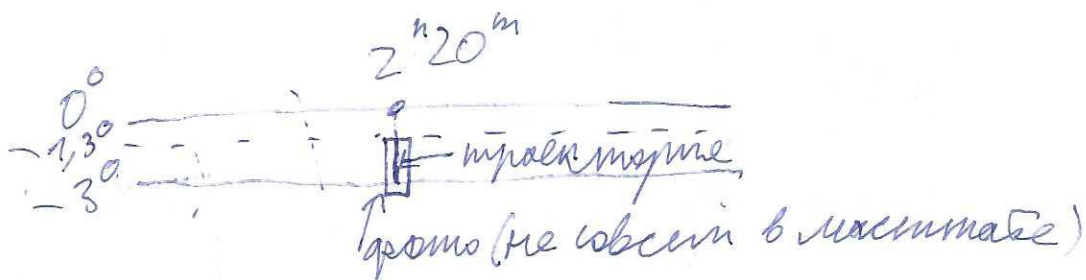 2ʰ20ᵐ
0°
-1,3°
-3°
траектория
фото (не совсем в масштабе)